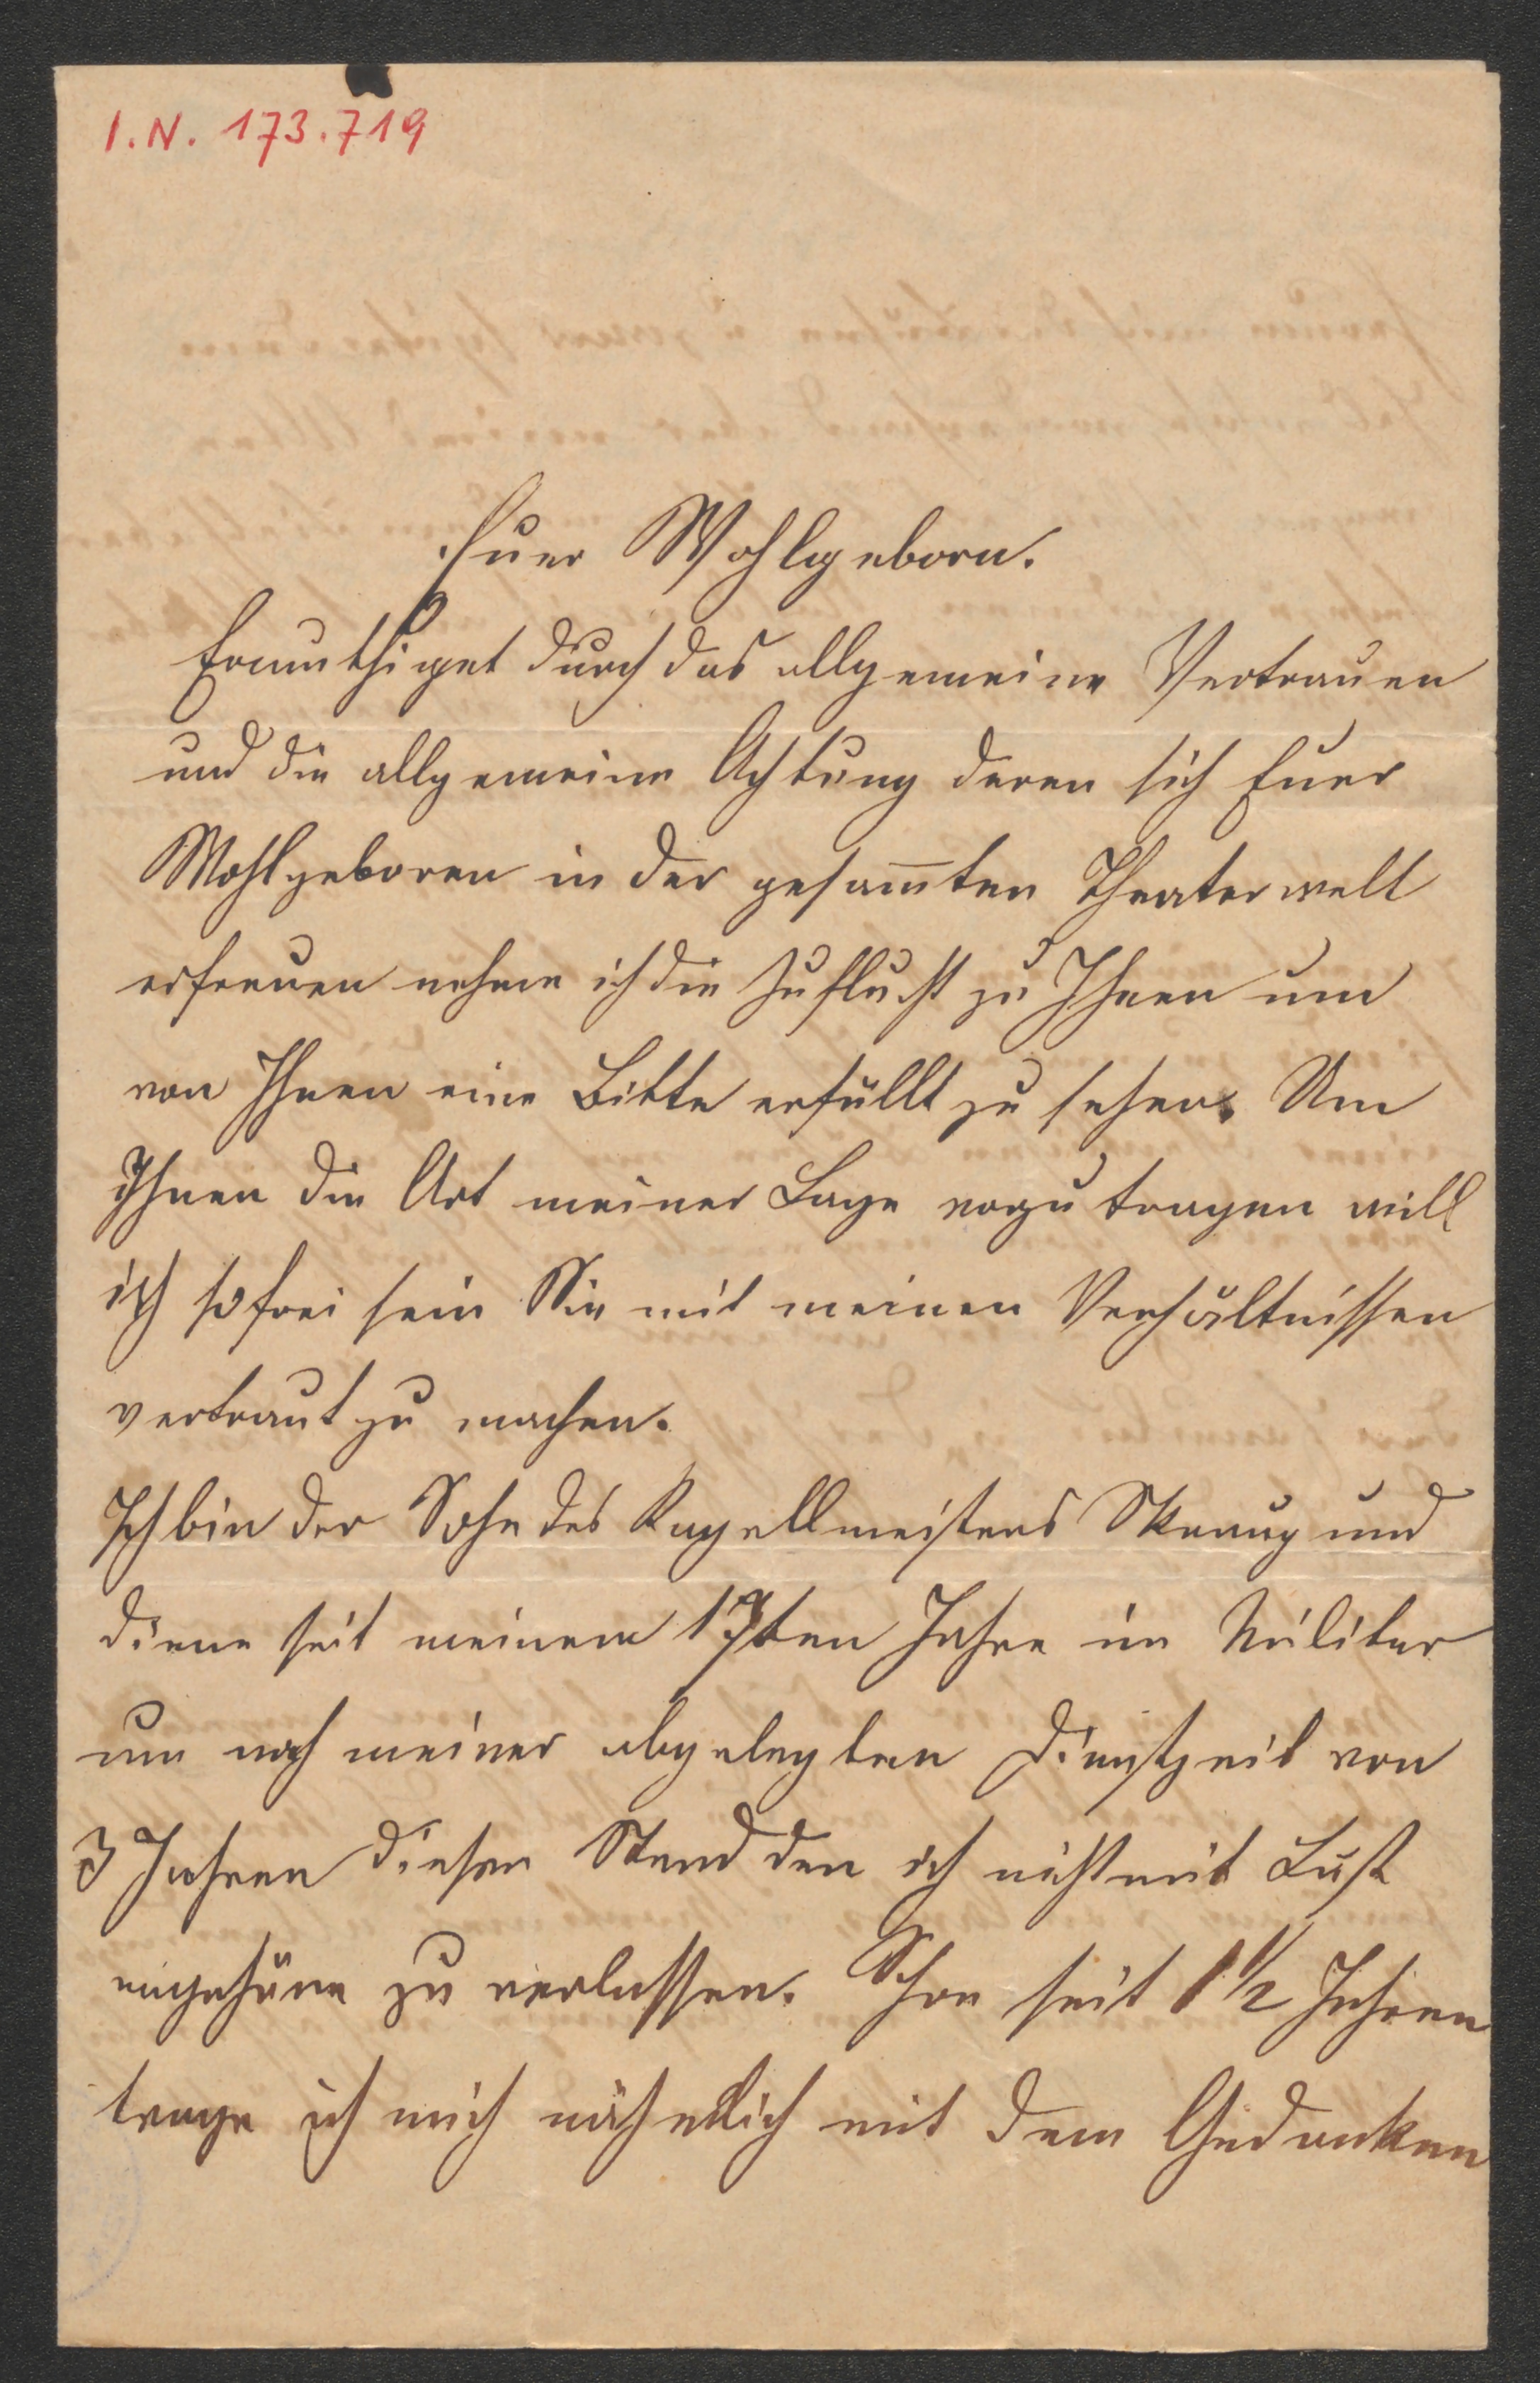 I.N. 173.719
Euer Wohlgeborn.
Ermuthiget durch das allgemeine Vertrauen
und die allgemeine Achtung deren sich Euer
Wohlgeboren in der gesam̄ten Theaterwelt
erfreuen nehme ich die Zuflucht zu Ihnen um
von Ihnen eine Bitte erfüllt zu sehen. Um
Ihnen die Art meiner Lage vorzutragen will
ich so frei sein Sie mit meinen Verhältnissen
vertraut zu machen.
Ich bin der Sohn des Kapellmeisters Skraup und
diene seit meinem 17ten Jahre im Militär
um nach meiner abgelegten Dienstzeit von
3 Jahren diesen Stand den ich nicht mit Lust
angehöre zu verlassen. Schon seit 1 1/2 Jahren
trage ich mich nähmlich mit dem Gedanken